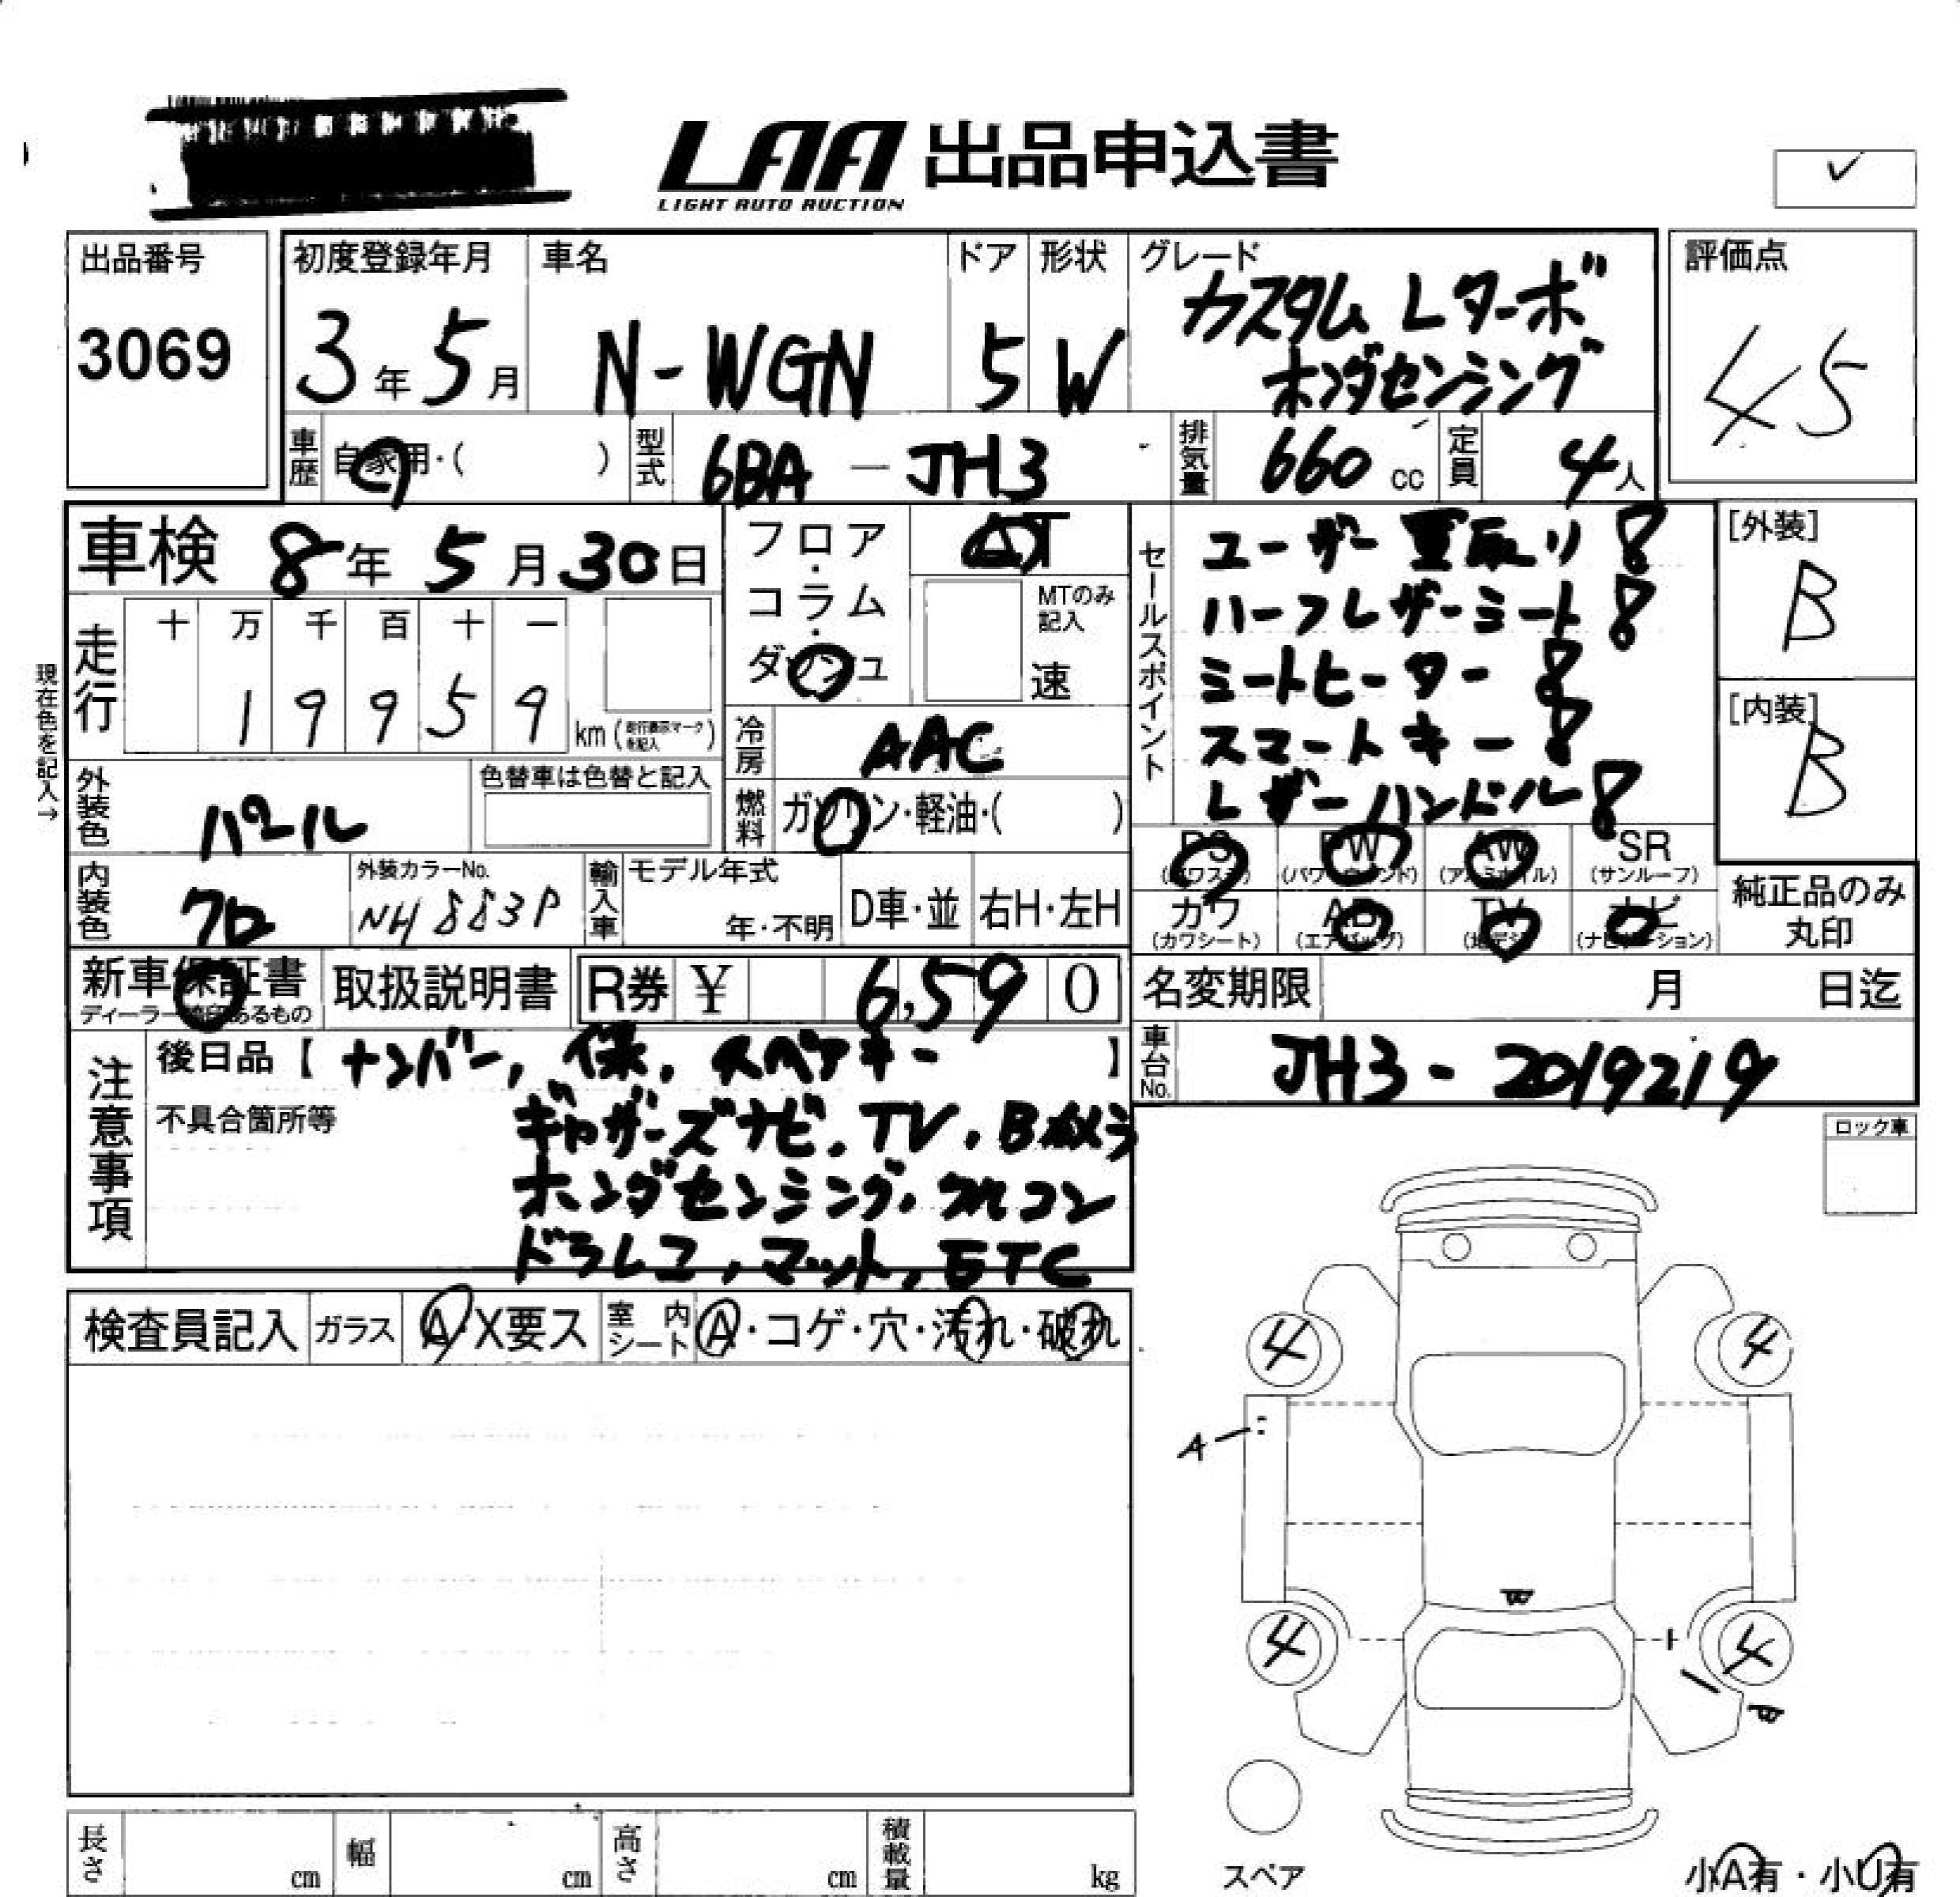 LAA 出品申込書
LIGHT AUTO AUCTION
出品番号
3069
初度登録年月
3年5月
車名
N-WGN
ドア
5
形状
W
グレード
カスタム Lターボ
ホンダセンシング
評価点
45
車歴
自家用・( )
型式
6BA - JH3
排気量
660 cc
定員
4人
車検 8年5月30日
フロア・コラム・ダッシュ
AT
MTのみ記入
速
走行
十 万 千 百 十 一
1 9 9 5 9
km (走行表示マークを記入)
現在色を記入→
冷房
AAC
外装色
パール
色替車は色替と記入
燃料
ガソリン・軽油・( )
内装色
クロ
外装カラーNo.
NH883P
輸入車
モデル年式
年・不明
D車・並
右H・左H
セールスポイント
ユーザー買取り
ハーフレザーシート
シートヒーター
スマートキー
レザーハンドル
[外装]
B
[内装]
B
PS (パワステ)
PW (パワーウィンド)
AW (アルミホイル)
SR (サンルーフ)
カワ (カワシート)
AB (エアバッグ)
TV (地デジ)
ナビ (ナビゲーション)
純正品のみ丸印
新車保証書
取扱説明書
R券 ¥ 6,590
名変期限 月 日迄
車台No.
JH3-2019219
注意事項
後日品【ナンバー, 保, スペアキー】
不具合箇所等
ギャザーズナビ, TV, Bカメラ
ホンダセンシング, クルコン
ドラレコ, マット, ETC
ロック車
検査員記入
ガラス
A・X要ス
室内シート
A・コゲ・穴・汚れ・破れ
4
4
A
4
4
スペア
小A有・小U有
長さ cm
幅 cm
高さ cm
積載量 kg